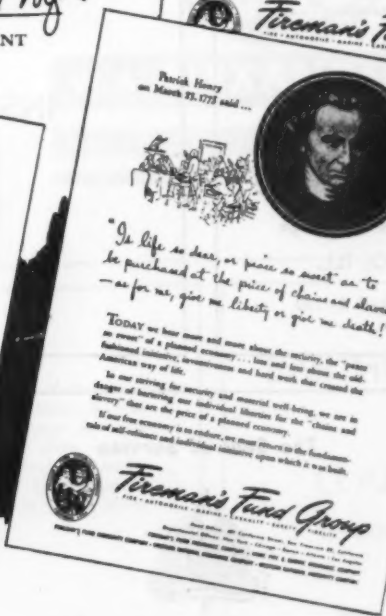 NT
Fireman's F
FIRE • AUTOMOBILE • MARINE • CAS
Patrick Henry
on March 23, 1775 said ...
"Is life so dear, or peace so sweet as to
be purchased at the price of chains and slave
— as for me, give me liberty or give me death!
TODAY we hear more and more about the security, the "peace
so sweet" of a planned economy ... less and less about the old-
fashioned initiative, inventiveness and hard work that created the
American way of life.
In our striving for security and material well-being, we are in
danger of bartering our individual liberties for the "chains and
slavery" that are the price of a planned economy.
If our free economy is to endure, we must return to the fundamen-
tals of self-reliance and individual initiative upon which it was built.
Fireman's Fund Group
FIRE • AUTOMOBILE • MARINE • CASUALTY • SURETY • FIDELITY